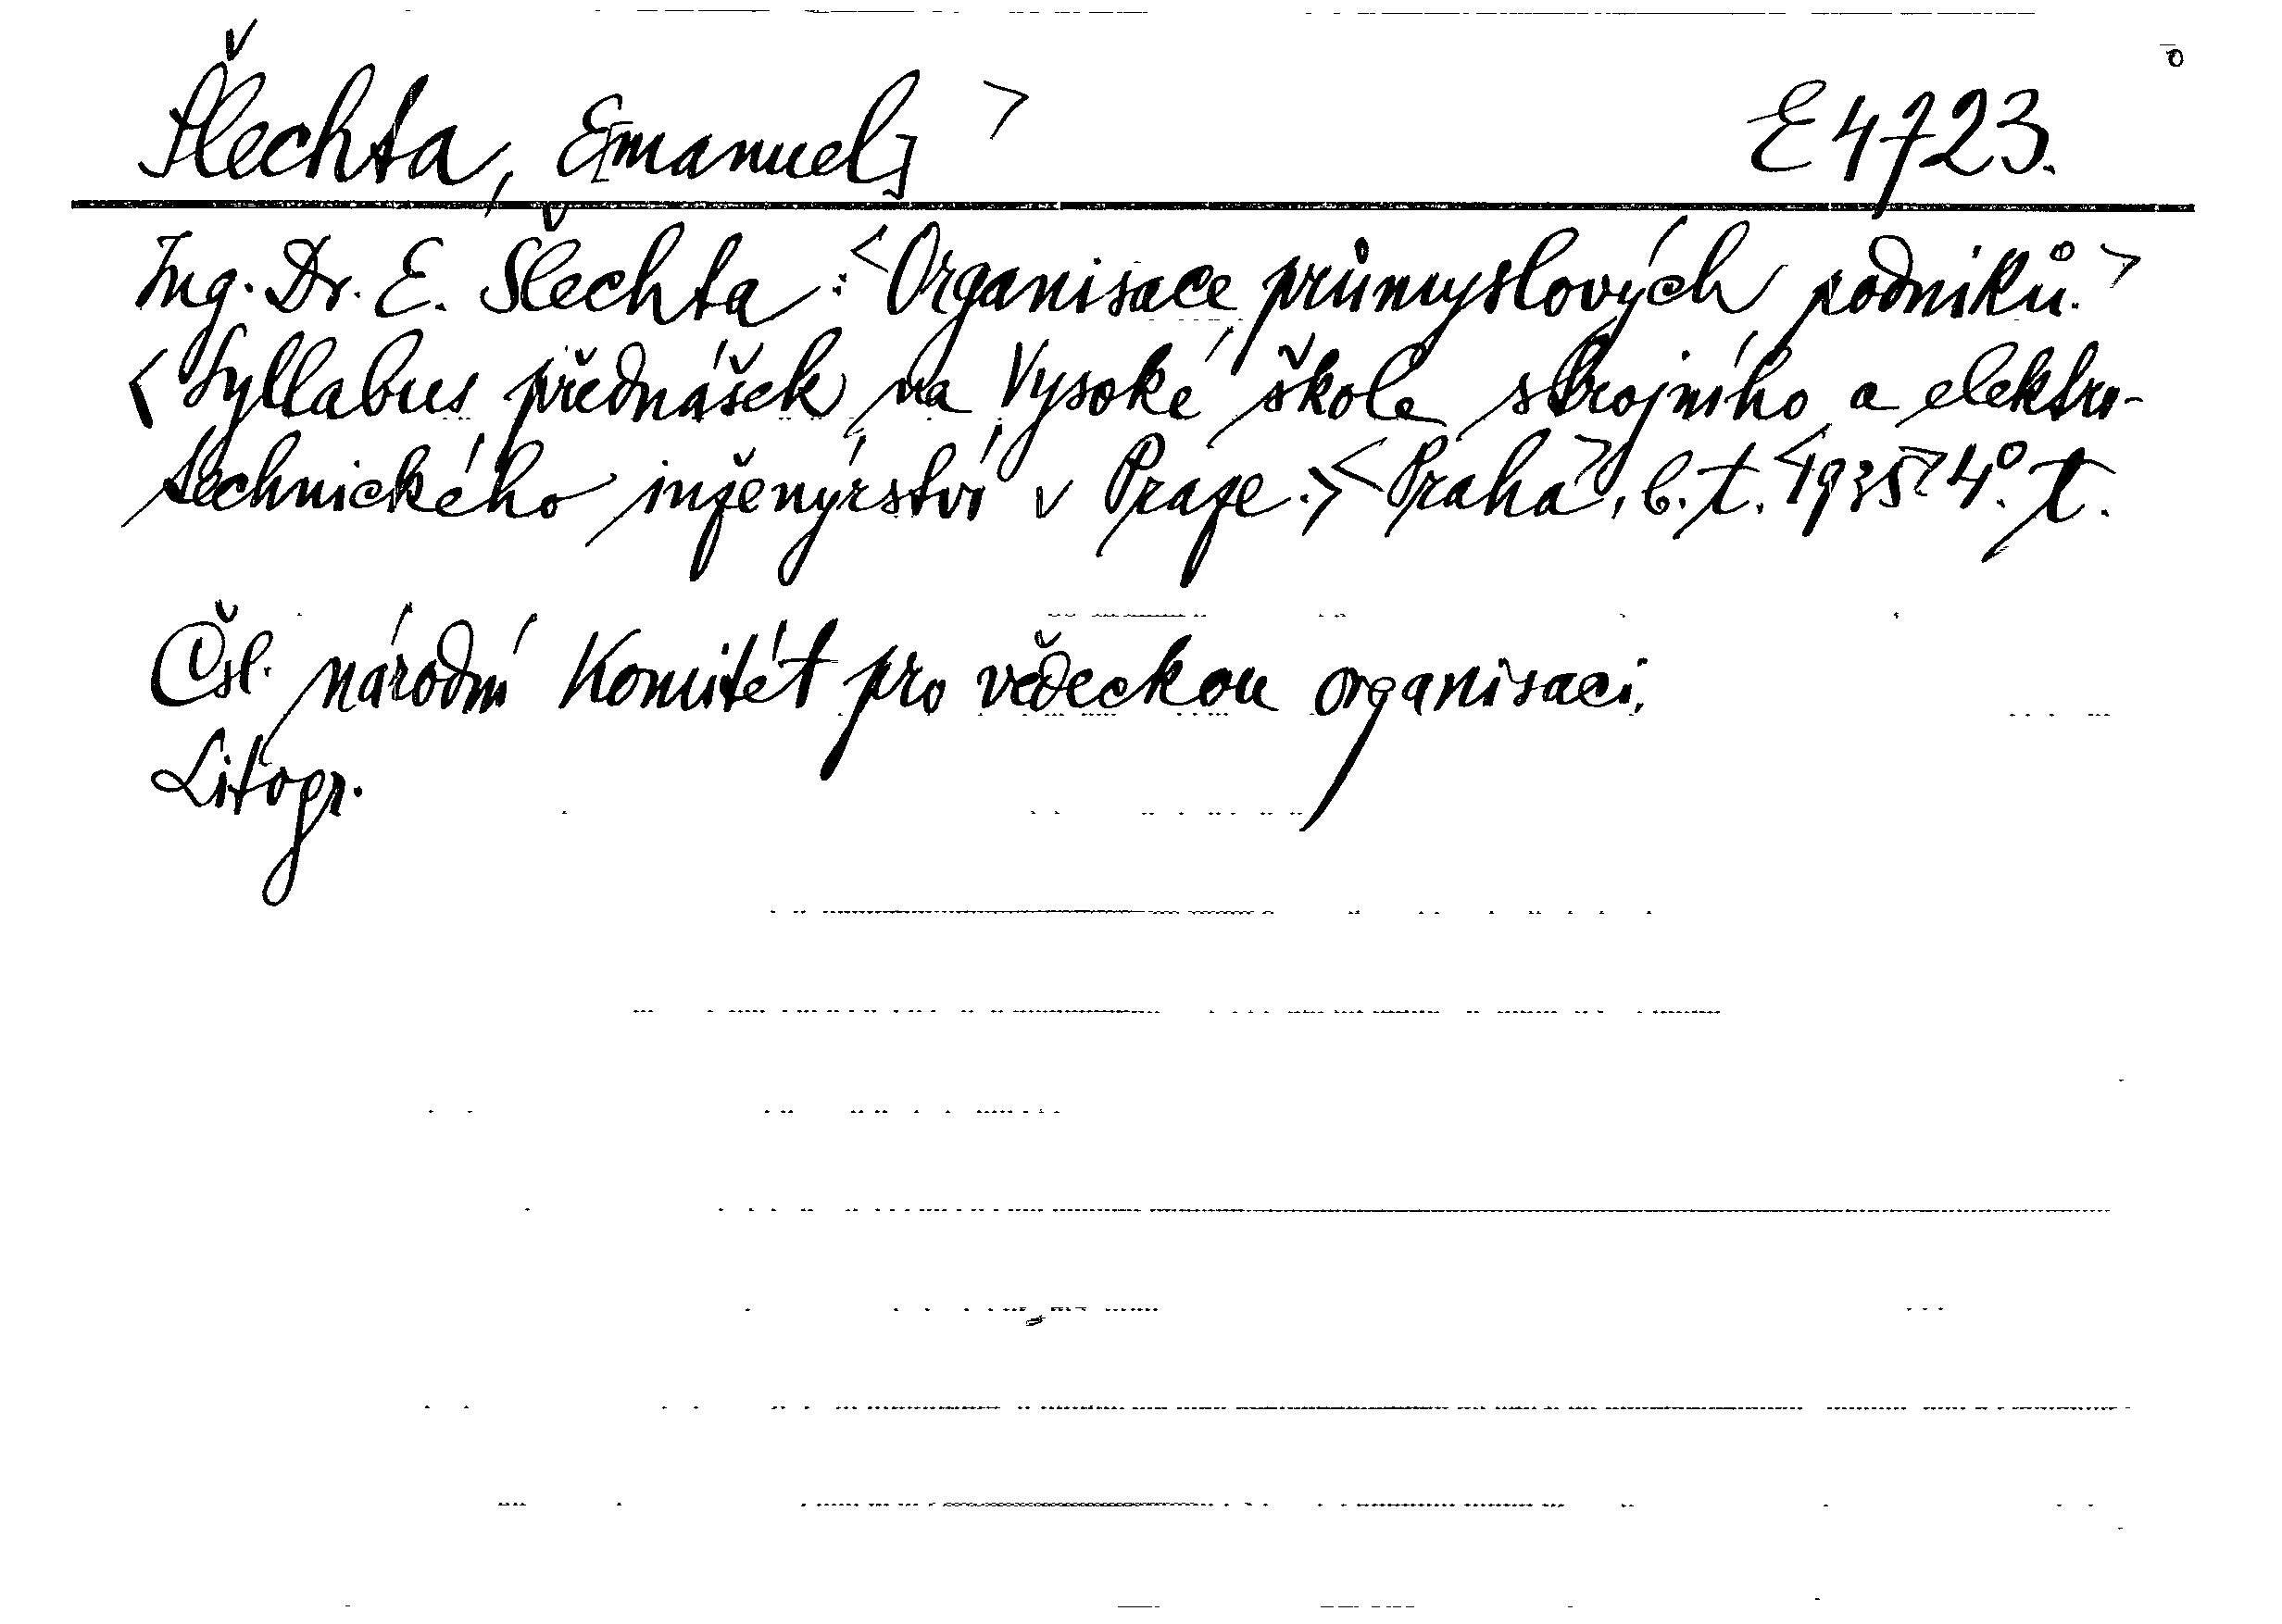 Šlechta, E[manuel] > E 4723.
Ing. Dr. E. Šlechta: <Organisace průmyslových podniků.>
<Syllabus přednášek na Vysoké škole strojního a elektro-
technického inženýrství v Praze.> <Praha>, b. t. <1935> 4°. t.
Čsl. národní Komitét pro vědeckou organisaci.
Litogr.